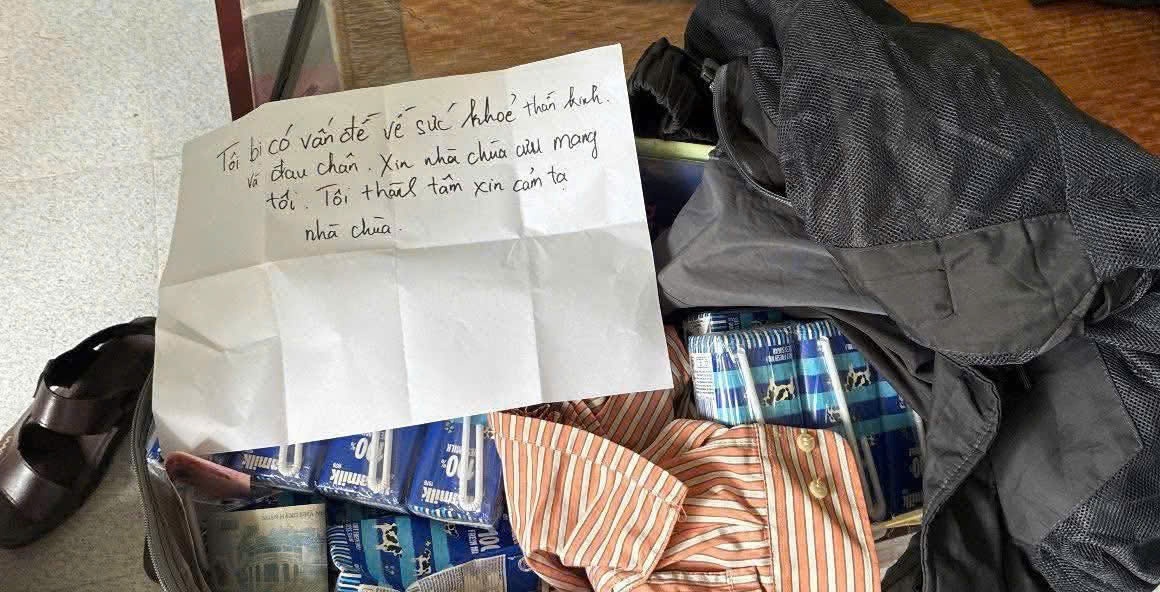 Tôi bị có vấn đề về sức khoẻ thần kinh.
và đau chân. Xin nhà chùa cưu mang
tôi. Tôi thành tâm xin cảm tạ
nhà chùa.
amilk
100%
amilk